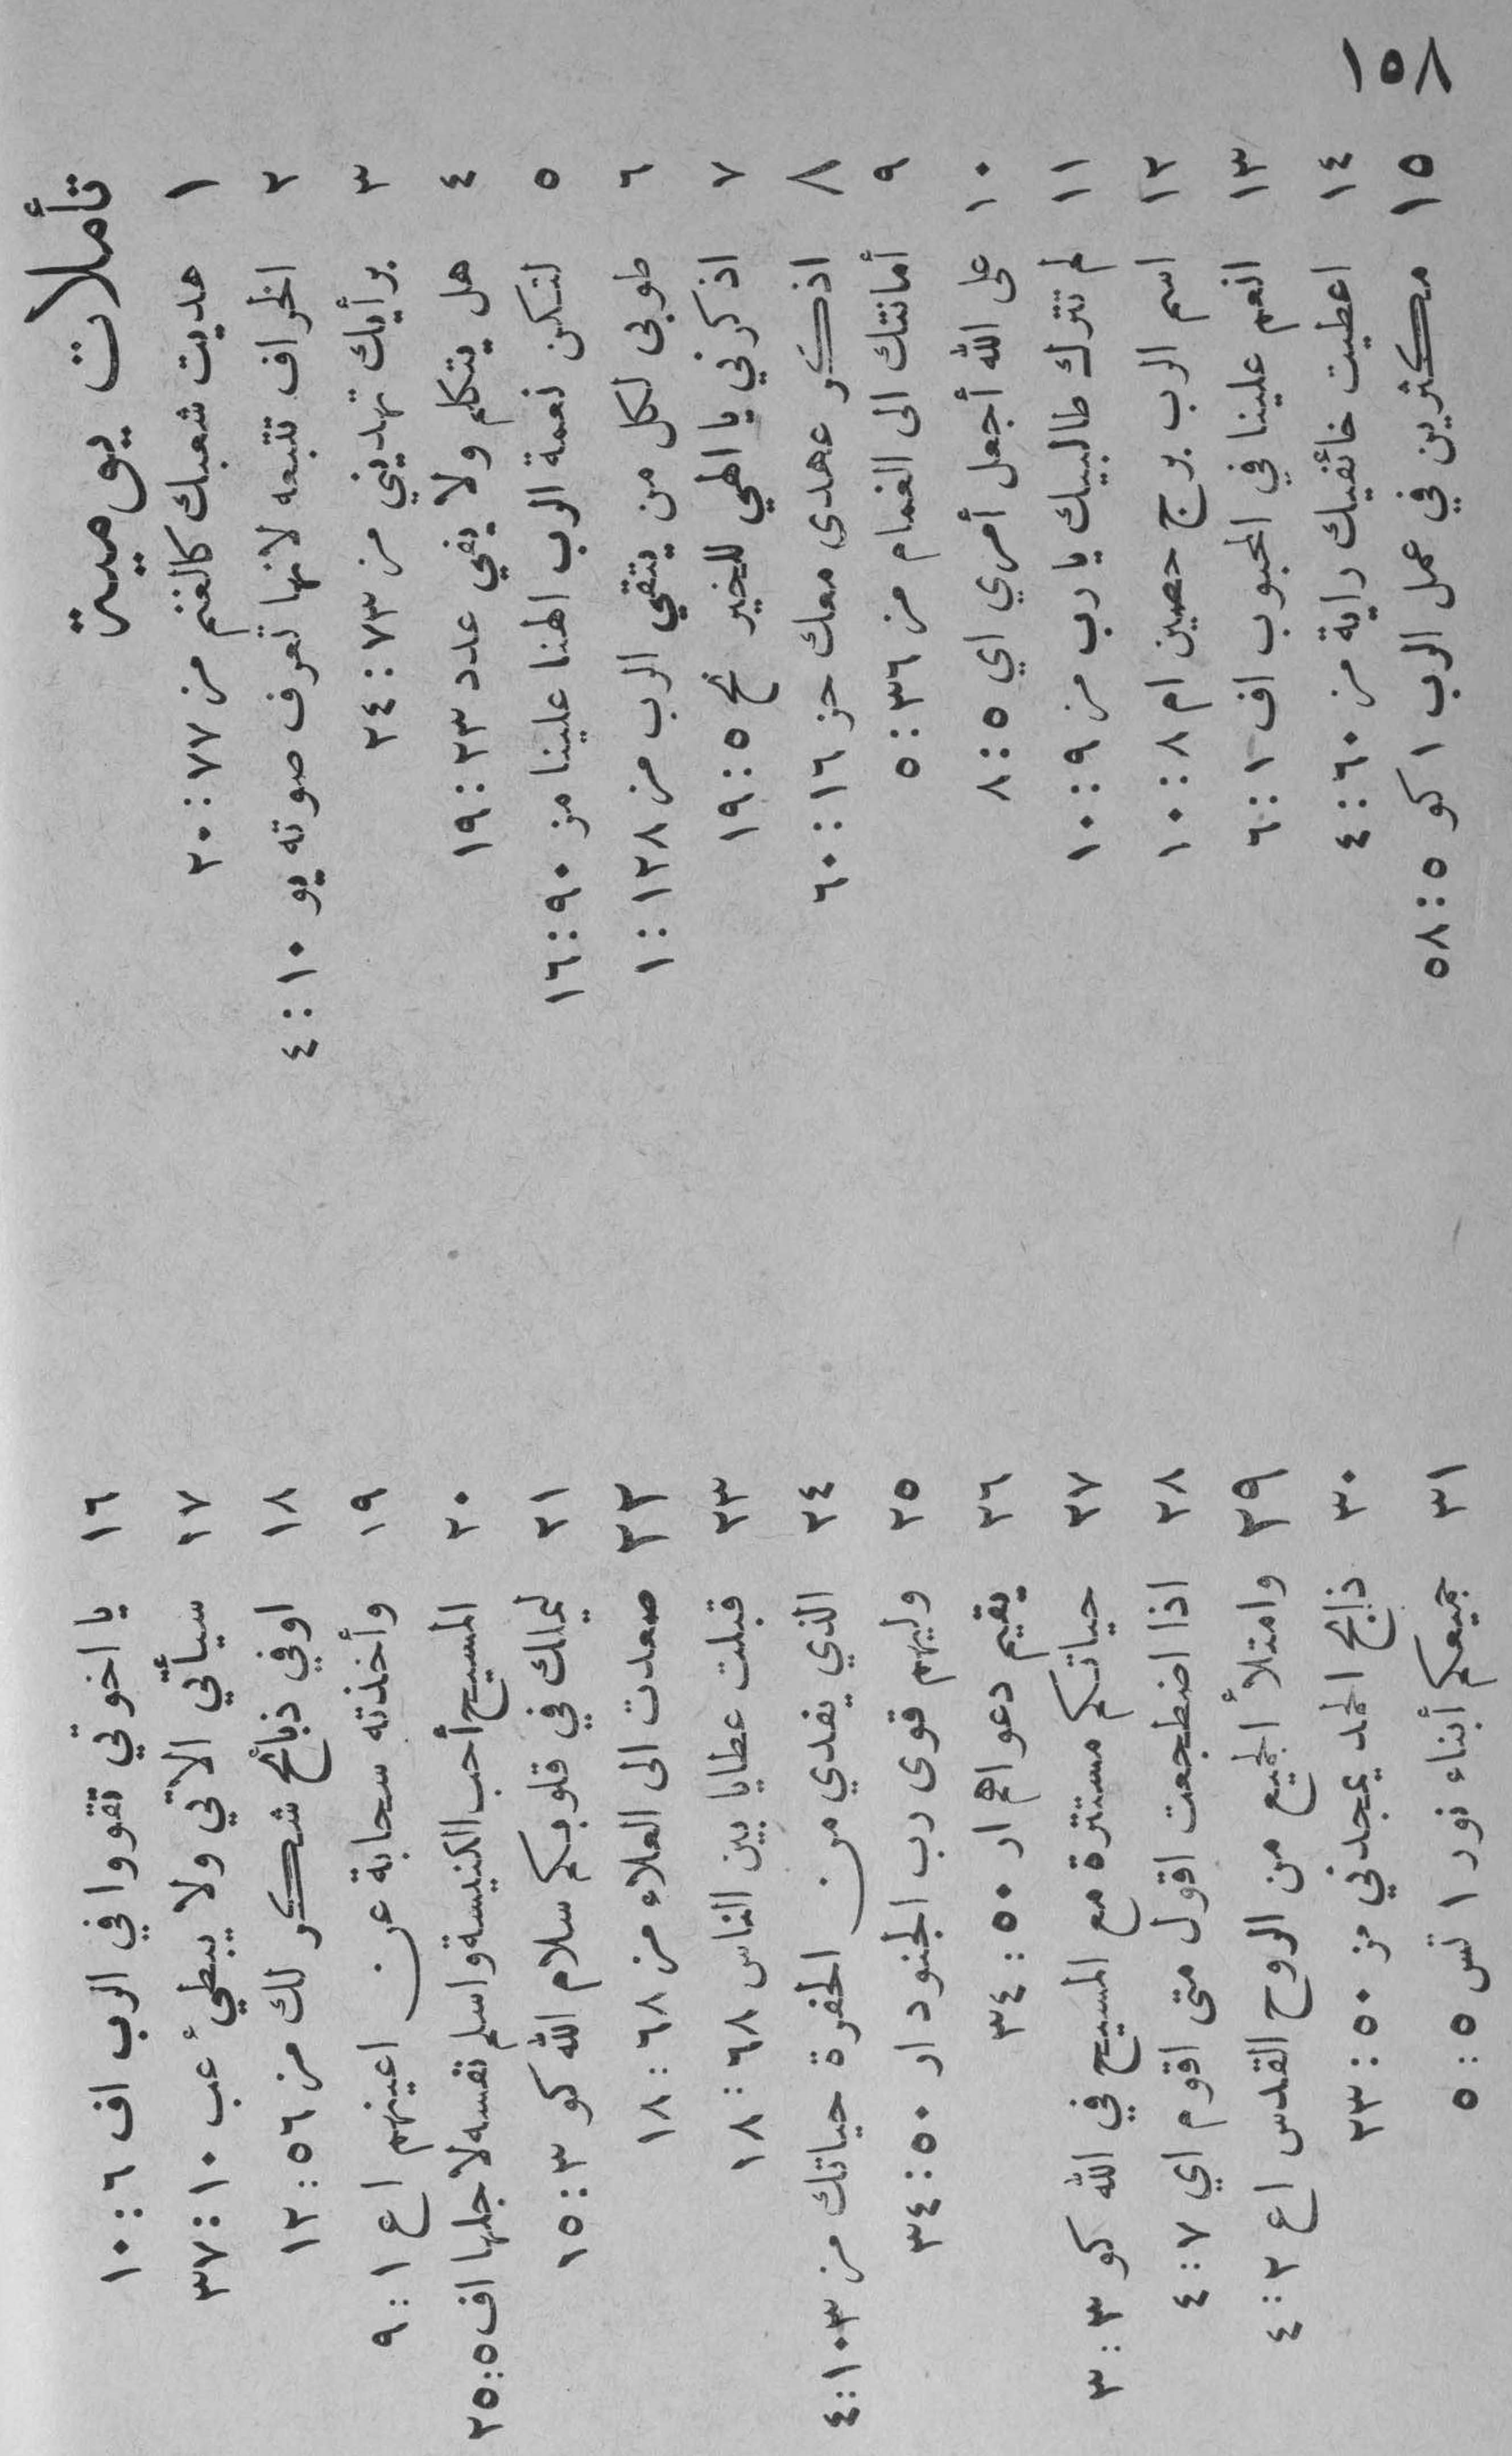 ١٥٨
تأملات يومية
١ هديت شعبك كالغنم مز ٧٧ : ٢٠
٢ الخراف تتبعه لانها تعرف صوته يو ١٠ : ٤
٣ برأيك تهديني مز ٧٣ : ٢٤
٤ هل يتكلم ولا يفي عدد ٢٣ : ١٩
٥ لتكن نعمة الرب الهنا علينا مز ٩٠ : ١٦
٦ طوبى لكل من يتقي الرب مز ١٢٨ : ١
٧ اذكرني يا الهي للخير نح ٥ : ١٩
٨ اذكر عهدى معك حز ١٦ : ٦٠
٩ أمانتك الى الغمام مز ٣٦ : ٥
١٠ على الله أجعل أمري اي ٥ : ٨
١١ لم تترك طالبيك يا رب مز ٩ : ١٠
١٢ اسم الرب برج حصين ام ٨ : ١٠
١٣ انعم علينا في المحبوب اف ١ : ٦
١٤ اعطيت خائفيك راية مز ٦٠ : ٤
١٥ مكثرين في عمل الرب ١ كو ٥ : ٥٨
١٦ يا اخوتي تقووا في الرب اف ٦ : ١٠
١٧ سيأتي الآتي ولا يبطئ عب ١٠ : ٣٧
١٨ اوفي ذبائح شكر لك مز ٥٦ : ١٢
١٩ وأخذته سحابة عن اعينهم اع ١ : ٩
٢٠ المسيح أحب الكنيسة واسلم نفسه لاجلها اف ٥ : ٢٥
٢١ ليملك في قلوبكم سلام الله كو ٣ : ١٥
٢٢ صعدت الى العلاء مز ٦٨ : ١٨
٢٣ قبلت عطايا بين الناس ٦٨ : ١٨
٢٤ الذي يفدي من الحفرة حياتك مز ١٠٣ : ٤
٢٥ وليهم قوى رب الجنود ار ٥٠ : ٣٤
٢٦ يقيم دعواهم ار ٥٠ : ٣٤
٢٧ حياتكم مستترة مع المسيح في الله كو ٣ : ٣
٢٨ اذا اضطجعت اقول متى اقوم اي ٧ : ٤
٢٩ وامتلأ الجميع من الروح القدس اع ٢ : ٤
٣٠ ذابح الحمد يمجدني مز ٥٠ : ٢٣
٣١ جميعكم أبناء نور ١ تس ٥ : ٥